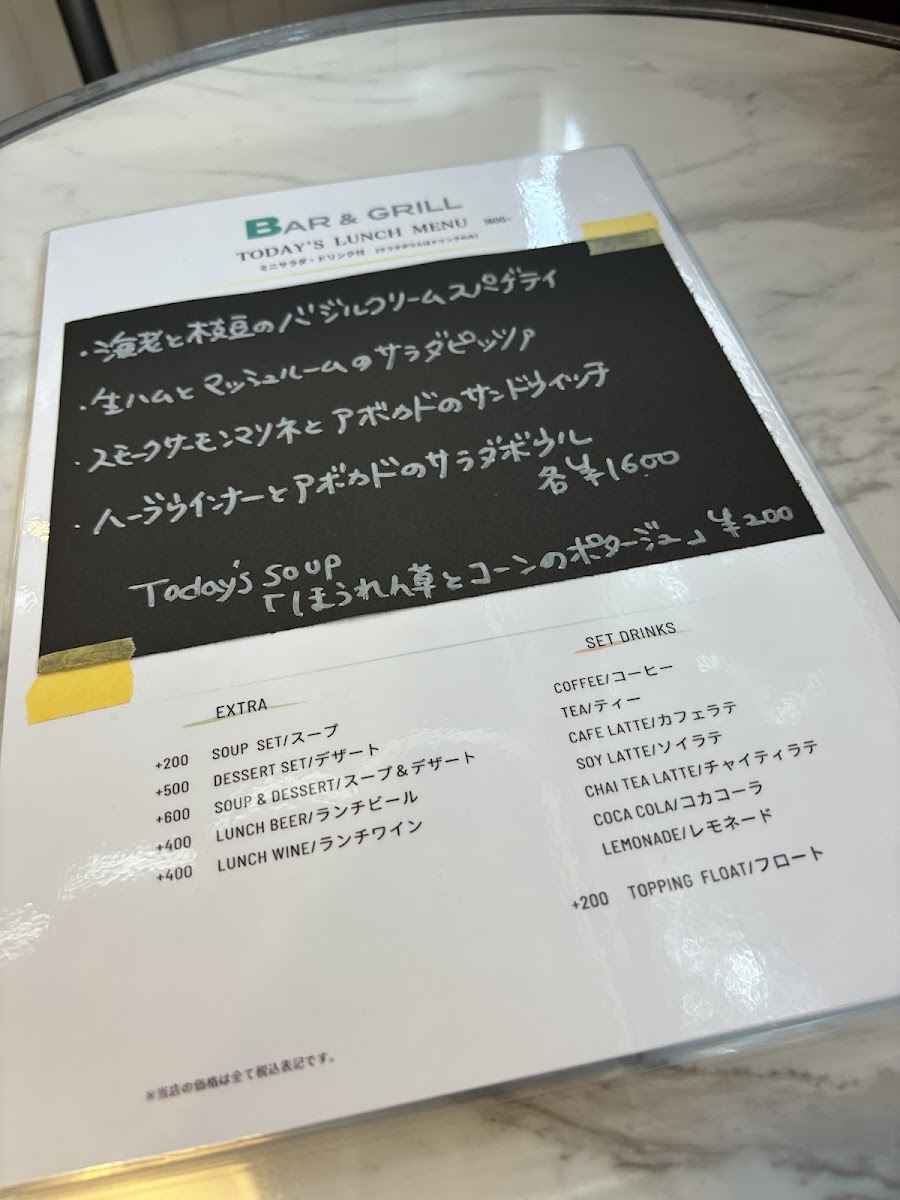 BAR & GRILL
TODAY'S LUNCH MENU 1600~
ミニサラダ・ドリンク付 (サラダボウルはドリンクのみ)
・海老と枝豆のバジルクリームスパゲティ
・生ハムとマッシュルームのサラダピッツァ
・スモークサーモンマリネとアボカドのサンドウィッチ
・ハーブウインナーとアボカドのサラダボウル
各¥1600
Today's soup
「ほうれん草とコーンのポタージュ」¥200
EXTRA
+200 SOUP SET/スープ
+500 DESSERT SET/デザート
+600 SOUP & DESSERT/スープ&デザート
+400 LUNCH BEER/ランチビール
+400 LUNCH WINE/ランチワイン
SET DRINKS
COFFEE/コーヒー
TEA/ティー
CAFE LATTE/カフェラテ
SOY LATTE/ソイラテ
CHAI TEA LATTE/チャイティラテ
COCA COLA/コカコーラ
LEMONADE/レモネード
+200 TOPPING FLOAT/フロート
※当店の価格は全て税込表記です。